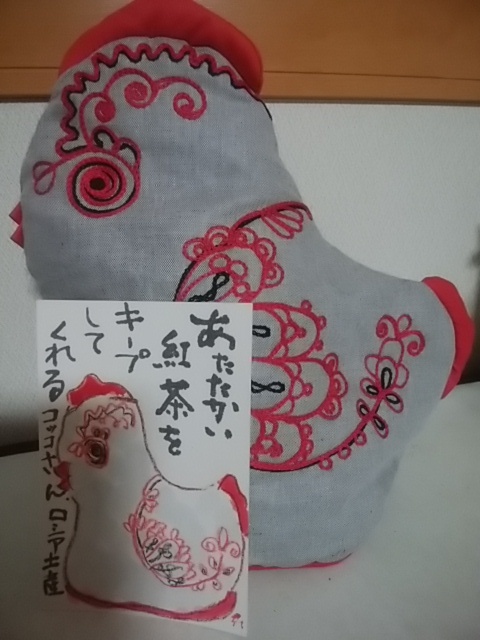 あたたかい
紅茶を
キープ
して
くれるコッコさん、ロシア土産